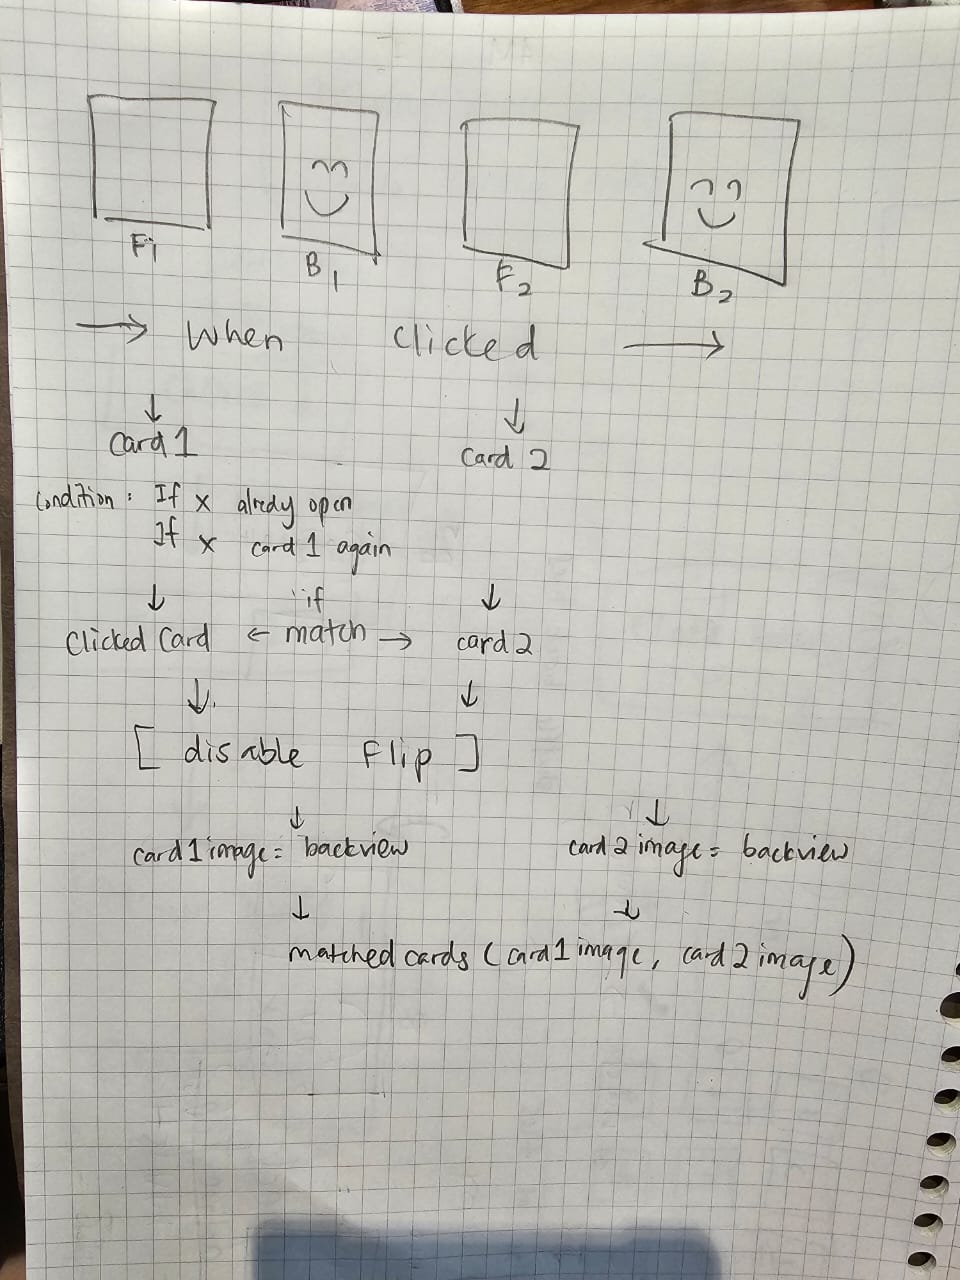 F1 B1 F2 B2
→ When clicked →
↓ ↓
Card 1 Card 2
Condition : If x alredy open
If x card 1 again
↓ if ↓
Clicked Card ← match → card 2
↓ ↓
[ disable Flip ]
↓ ↓
card 1 image = backview card 2 image = backview
↓ ↓
matched cards (card 1 image, card 2 image)